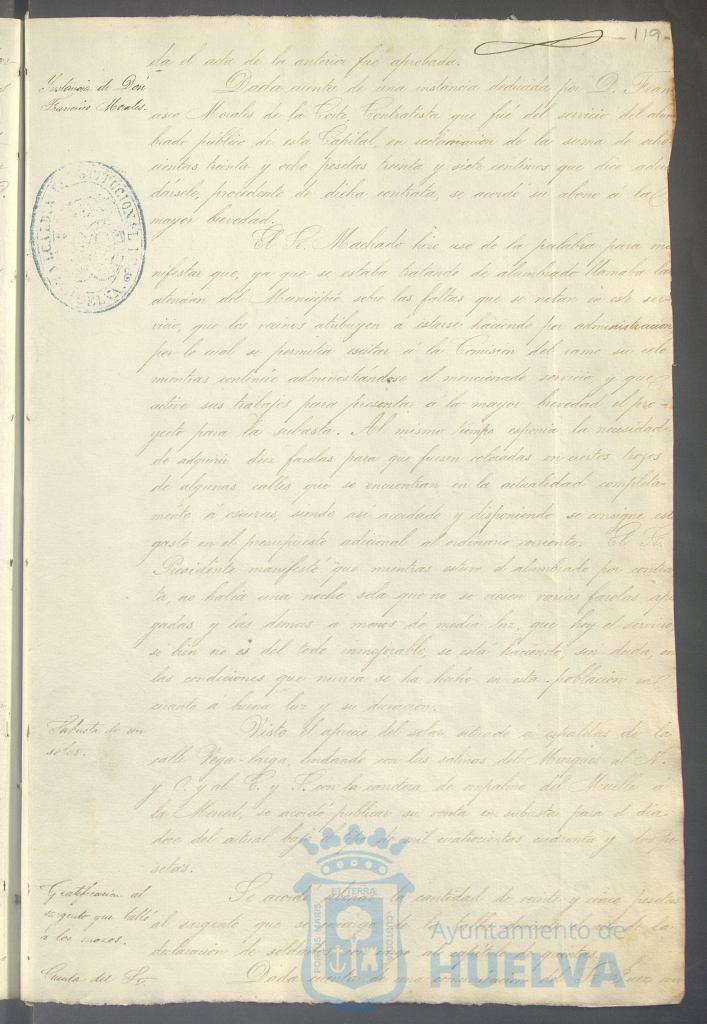 119
da el acta de la anterior fué aprobada.
Instancia de Don
Francisco Morales.
Dada cuenta de una instancia deducida por D. Fran
cisco Morales de la Corte, Contratista que fué del servicio del alum
brado público de esta Capital, en reclamacion de la suma de ocho
cientas treinta y ocho pesetas treinta y siete centimos que dice adeu
dársele, procedente de dicha contrata, se acordó su abono á la
mayor brevedad.
El Sr. Machado hizo uso de la palabra para ma
nifestar que, ya que se estaba tratando de alumbrado llamaba la
atencion del Municipio sobre las faltas que se notan en este ser
vicio, que los vecinos atribuyen a estarse haciendo por administracion
por lo cual se permitia escitar á la Comision del ramo su celo
mientras continúe administrándose el mencionado servicio, y que
active sus trabajos para presentar á la mayor brevedad el pro-
yecto para la subasta. Al mismo tiempo esponia la necesidad
de adquirir diez farolas para que fuesen colocadas en ciertos trozos
de algunas calles que se encuentran en la actualidad completa-
mente á oscuras, siendo asi acordado y disponiendo se consigne este
gasto en el presupuesto adicional al ordinario corriente. El Sr.
Presidente manifestó que mientras estuvo el alumbrado por contra
ta, no habia una noche sola que no se viesen varias farolas apa
gadas y las demas a menos de media luz, que hoy el servicio
si bien no es del todo inmejorable, se está haciendo sin duda, en
las condiciones que nunca se ha hecho en esta poblacion en
cuanto a buena luz y su duracion.
Subasta de un
solar.
Visto el aprecio del solar situado á espaldas de la
calle Vega-larga, lindando con las salinas del Marques al N.
y O. y al E. y S. con la carretera de empalme del Muelle a
la Merced, se acordó publicar su venta en subasta para el dia
doce del actual bajo el tipo de mil cuatrocientas cuarenta y dos pe
setas.
Gratificacion al
sargento que talló
a los mozos.
Se acordó abonar la cantidad de veinte y cinco pesetas
al sargento que se encargó de la talla
declaracion de soldados con cargo al capítulo de quintas.
Cuenta del Sr.
Dada cuenta de una comunicacion
ALCALDIA CONSTITUCIONAL
HUELVA
PORTUS MARIS
ET TERRAE
CUSTODIA
Ayuntamiento de
HUELVA